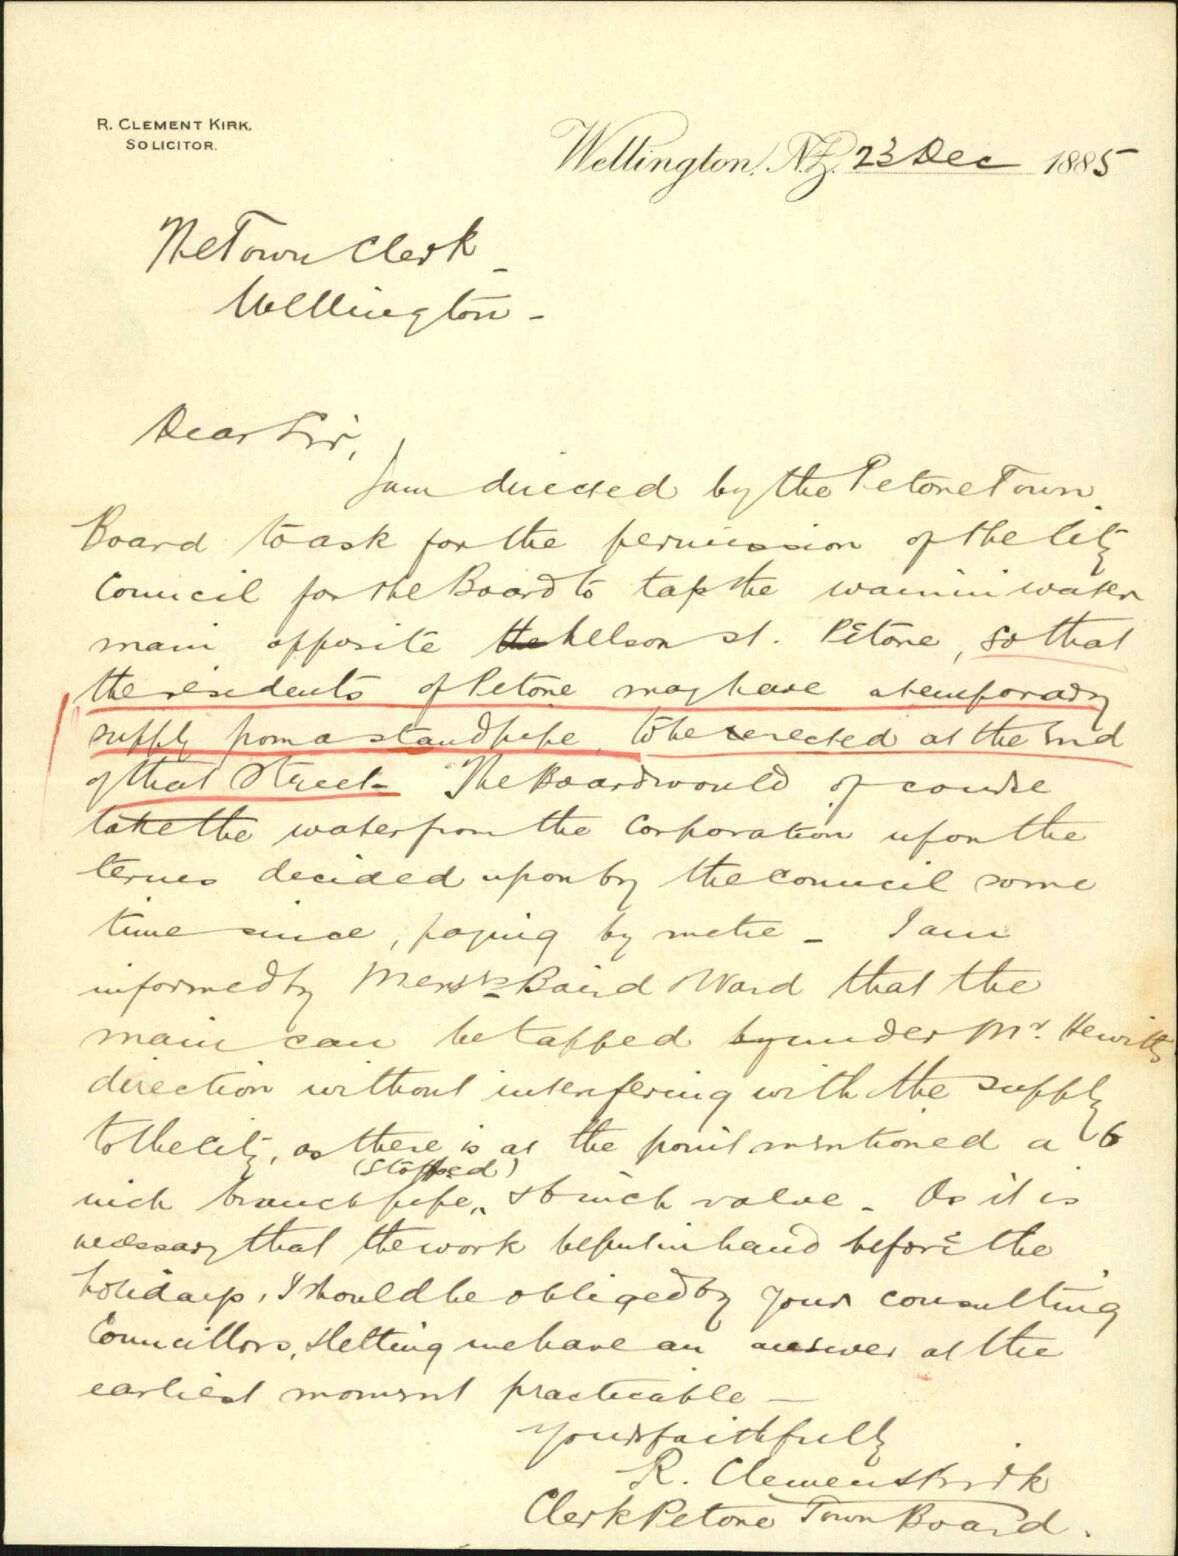 R. CLEMENT KIRK.
SOLICITOR.
Wellington, N.Z. 23 Dec 1885
The Town Clerk
Wellington -
Dear Sir,
I am directed by the Petone Town
Board to ask for the permission of the City
Council for the Board to tap the wainui water
main opposite the Nelson st. Petone, so that
the residents of Petone may have a temporary
supply from a standpipe, to be erected at the end
of that Street - The Board would of course
take the water from the Corporation upon the
terms decided upon by the Council some
time since, paying by metre - I am
informed by Messrs Baird & Ward that the
main can be tapped by under Mr. Hewitts
direction without interfering with the supply
to the City, as there is at the point mentioned a 6
(stopped)
inch branch pipe, & 6 inch valve - As it is
necessary that the work be put in hand before the
holidays, I should be obliged by your consulting
Councillors, & letting me have an answer at the
earliest moment practicable -
Yours faithfully
R. Clement Kirk
Clerk Petone Town Board.